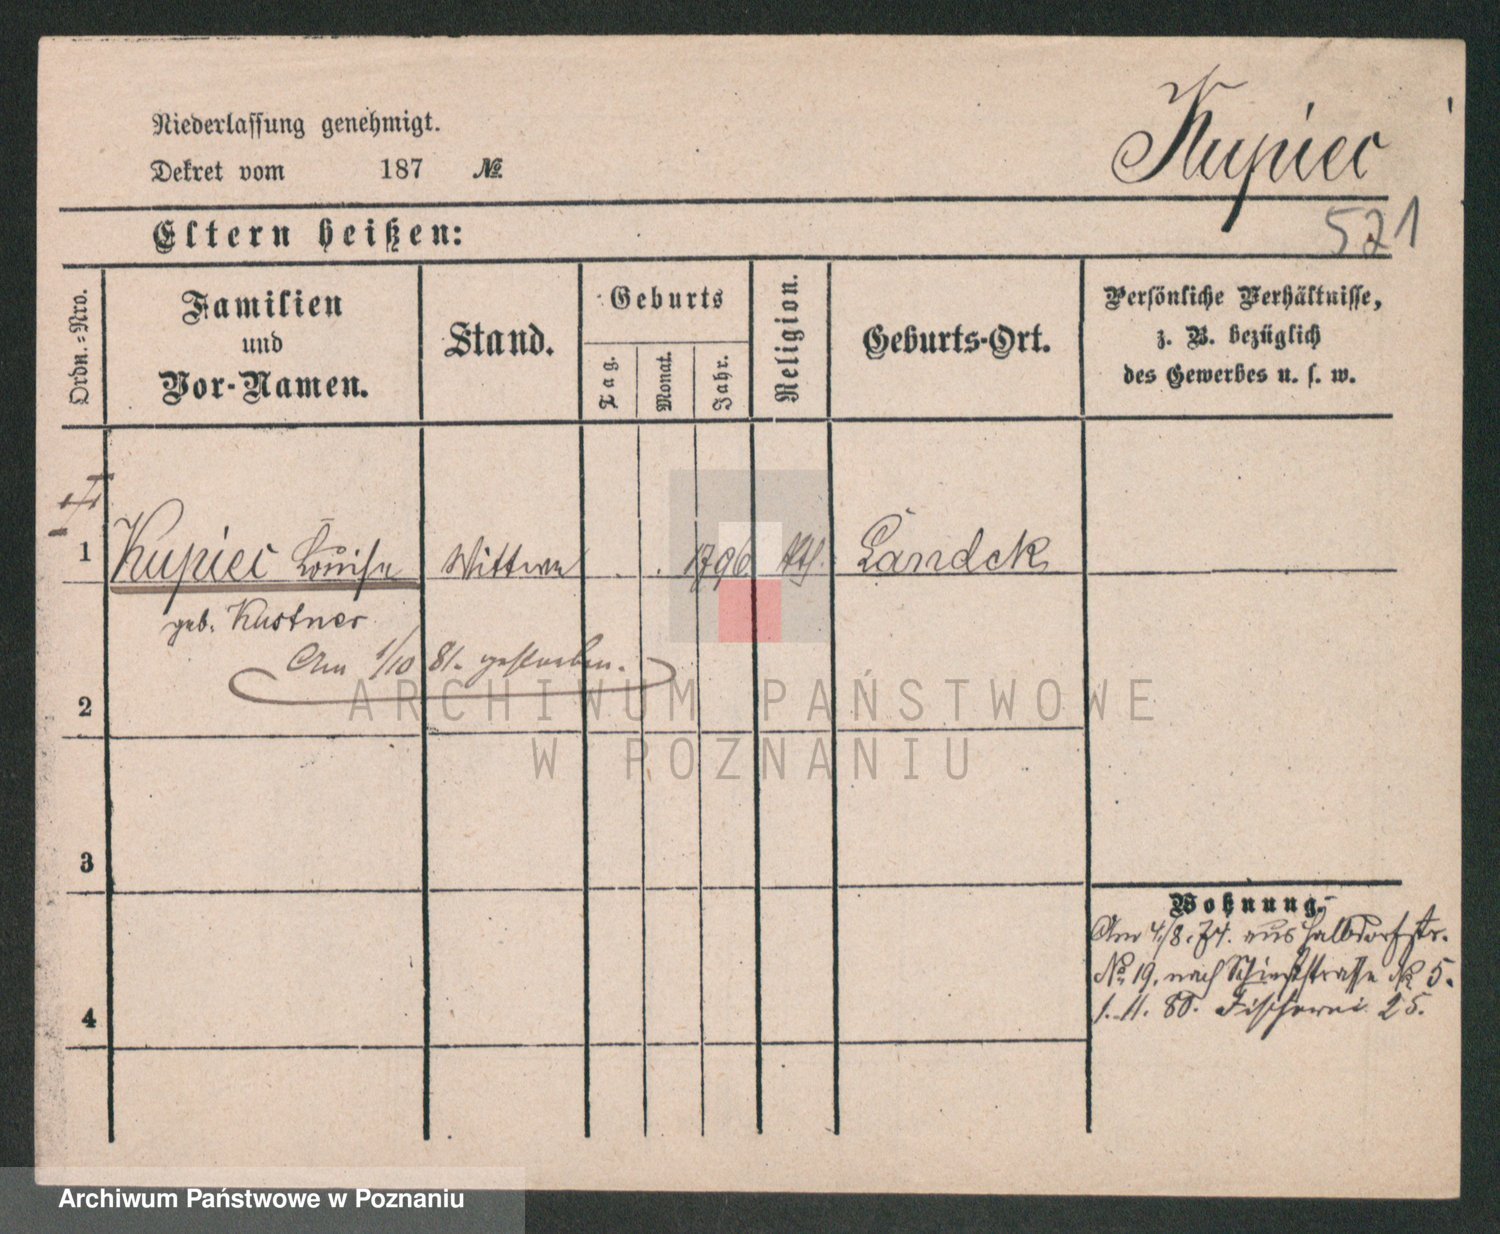 Kupiec
Niederlassung genehmigt.
Dekret vom 187 №
521
Eltern heißen:
Ordn.=Nro.
Familien
und
Vor-Namen.
Stand.
Geburts
Tag.
Monat.
Jahr.
Religion.
Geburts-Ort.
Persönliche Verhältnisse,
z. B. bezüglich
des Gewerbes u. s. w.
1 Kupiec Louise Wittwe 1796 Kth. Landek
geb. Kustner
Am 1/10 81. gestorben.
2
ARCHIWUM PAŃSTWOWE
W POZNANIU
3
Wohnung.
Am 4/8. 74. aus Halbdorfstr.
№ 19. nach Schießstrasse № 5.
1. 11. 80. Fischerei 25.
4
Archiwum Państwowe w Poznaniu